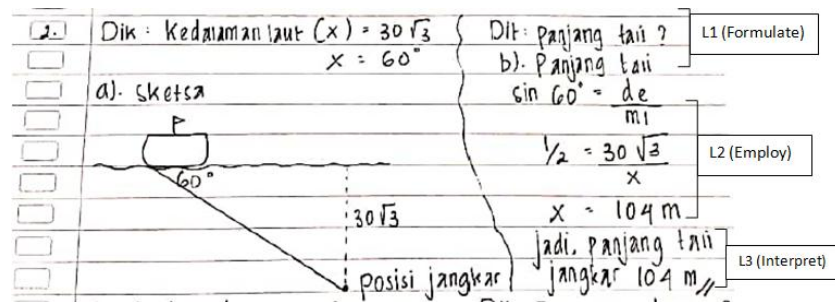 2. Dik : Kedalaman laut (x) = 30 √3
x = 60°
a). Sketsa
60°
30 √3
posisi jangkar
Dit : panjang tali ?
b). Panjang tali
sin 60° = de
mi
1/2 = 30 √3
x
x = 104 m
jadi, panjang tali
jangkar 104 m //
L1 (Formulate)
L2 (Employ)
L3 (Interpret)